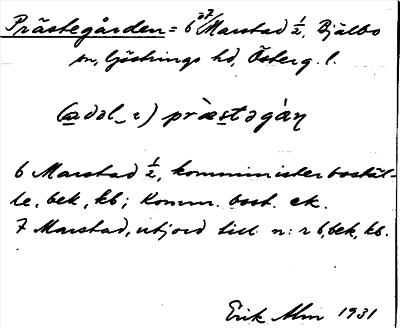 Prästegården = 6 o 7 Marstad ½, Bjälbo
sn, Göstrings hd, Österg. l.
præstəgàṇ
6 Marstad ½, komministerbostäl-
le, bek, kb; Komm. bost. ek.
7 Marstad, utjord till n:r 6, bek, kb.
Erik Alm 1931